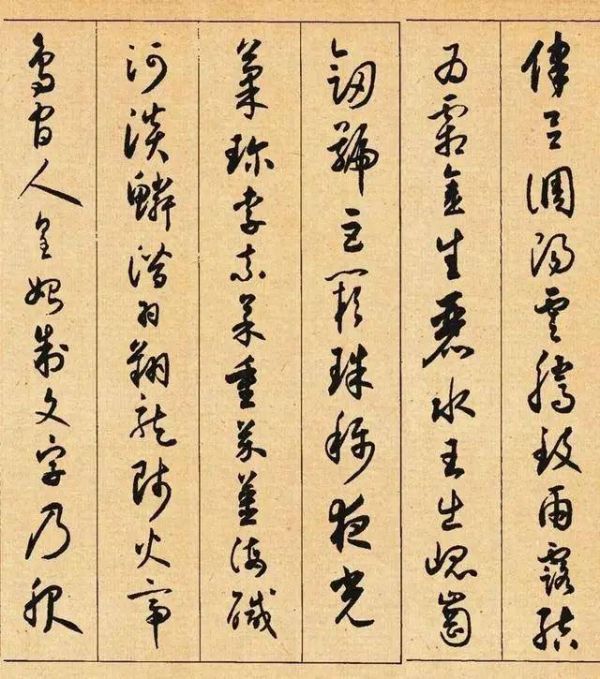 律呂調陽雲騰致雨露結
為霜金生麗水玉出崐崗
劍號巨闕珠稱夜光
菓珍李柰菜重芥薑海鹹
河淡鱗潛羽翔龍師火帝
鳥官人皇始制文字乃服